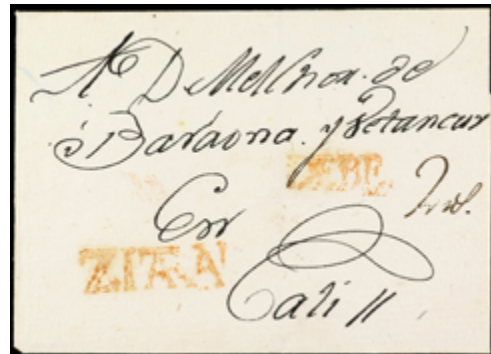 A D Melchor. de
Baraona. y Betancur
DEBE.
En
ZITA
Cali //